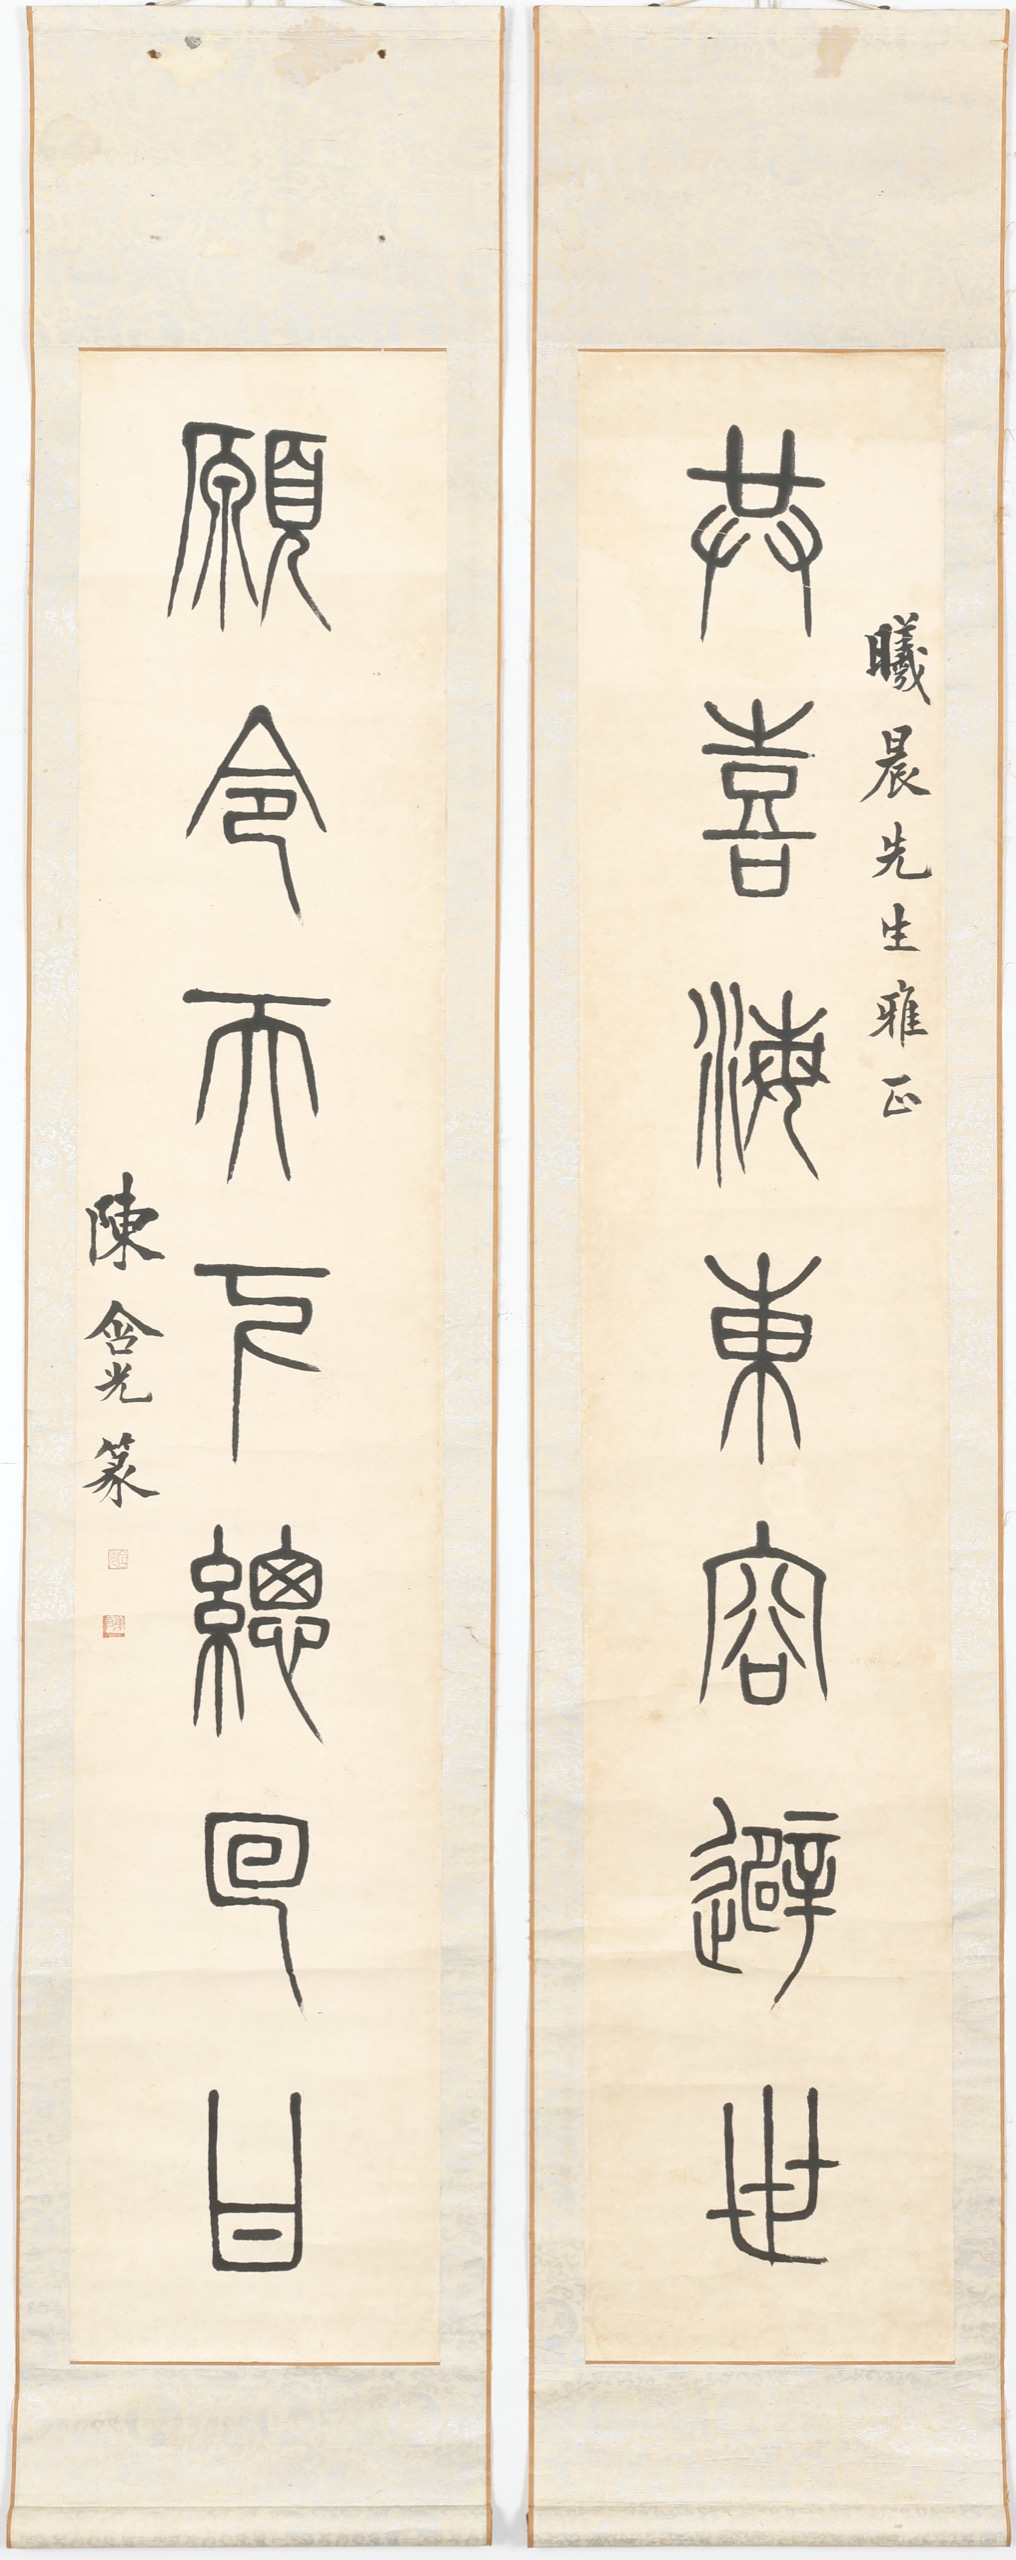 共喜海東容避世
曦晨先生雅正
願令天下總回甘
陳含光篆